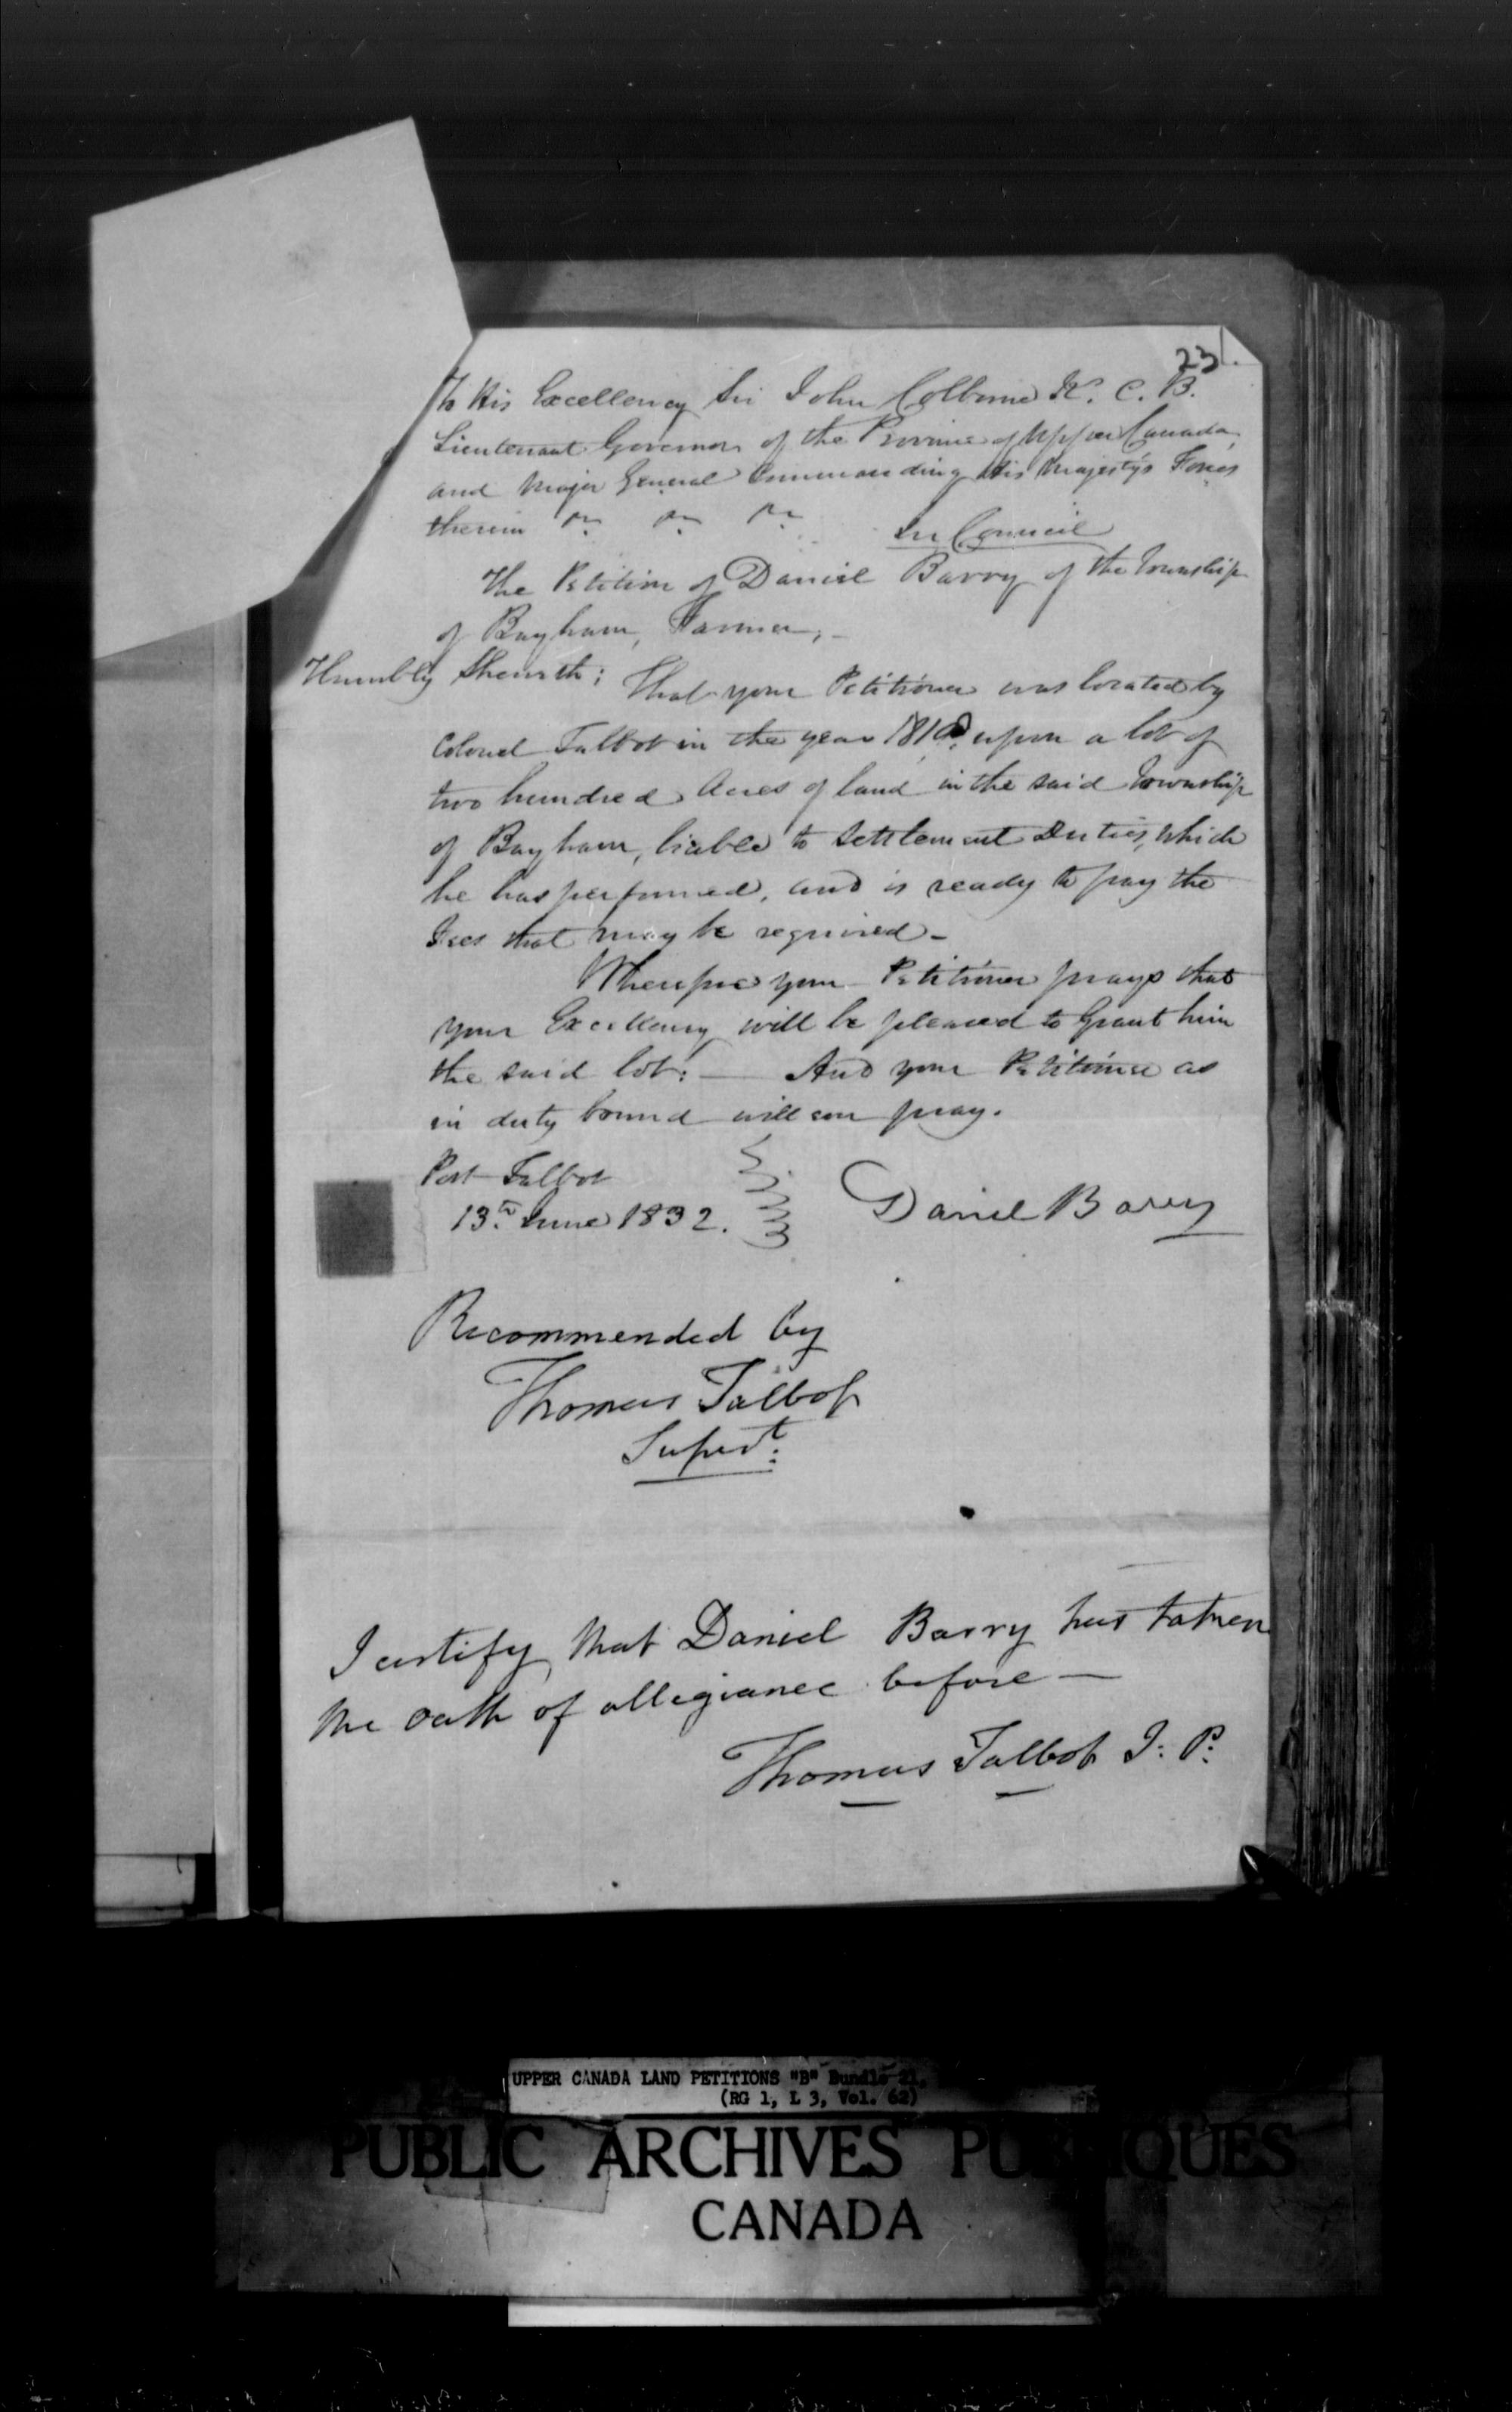 23.
To His Excellency Sir John Colborne K. C. B.
Lieutenant Governor of the Province of Upper Canada,
and Major General Commanding His Majesty's Forces
therein &c &c &c In Council
The Petition of Daniel Barry of the Township
of Bayham, Farmer,-
Humbly Sheweth; That your Petitioner was located by
Colonel Talbot in the year upon a lot of
two hundred Acres of land in the said Township
of Bayham, liable to Settlement Duties, which
he has performed, and is ready to pay the
Fees that may be required-
Wherefore your Petitioner prays that
your Excellency will be pleased to Grant him
the said lot:- And your Petitioner as
in duty bound will ever pray.
Port Talbot
13th June 1832. Daniel Barry
Recommended by
Thomas Talbot
Supedt.
I certify that Daniel Barry has taken
the oath of allegiance before —
Thomas Talbot J: P:
UPPER CANADA LAND PETITIONS "B" Bundle 21,
(RG 1, L 3, Vol. 62)
PUBLIC ARCHIVES PUBLIQUES
CANADA